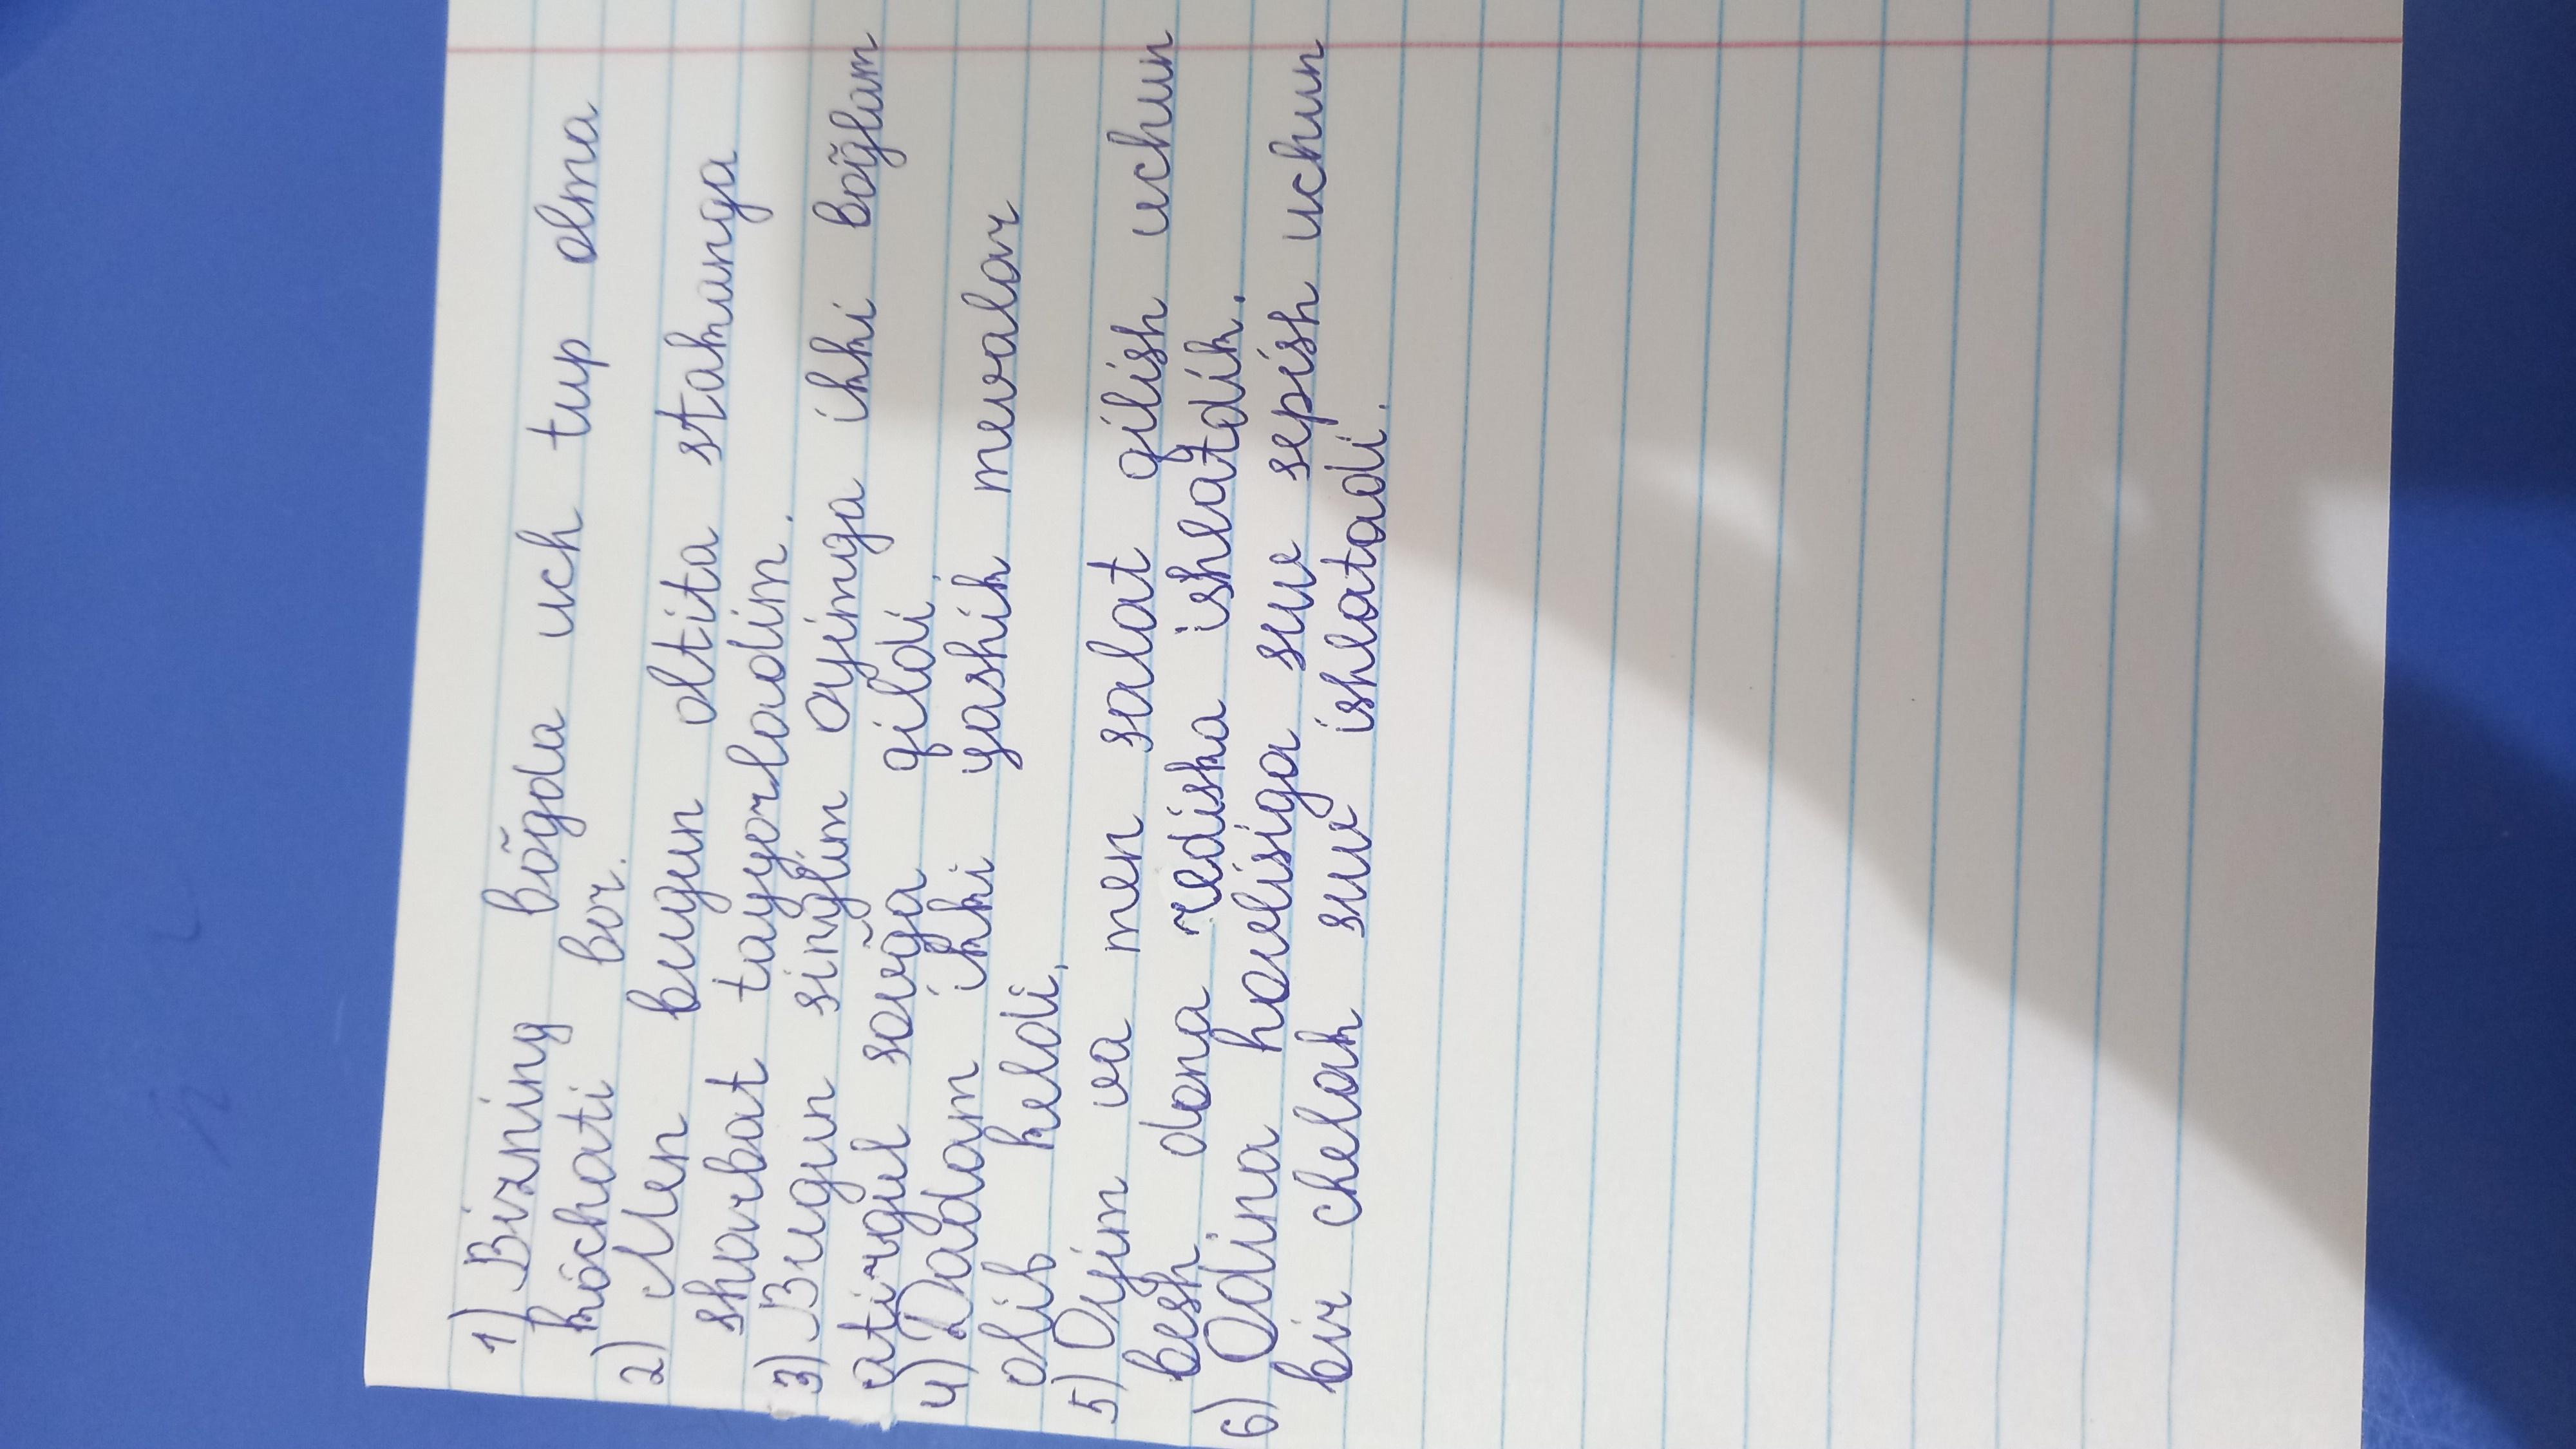 1) Bizning bõg̃da uch tup olma
kóchati bor.
2) Men bugun oltita stakanga
sharbat tayyorladim.
3) Bugun singlim oyimga ikki bog̃lam
atirgul sovg̃a qildi
4) Dadam ikki yashik mevalar
olib keldi.
5) Oyim va men salat qilish uchun
besh dona rediska ishlatdik.
6) Odina hovlisiga suv sepish uchun
bir chelak suv ishlatadi.